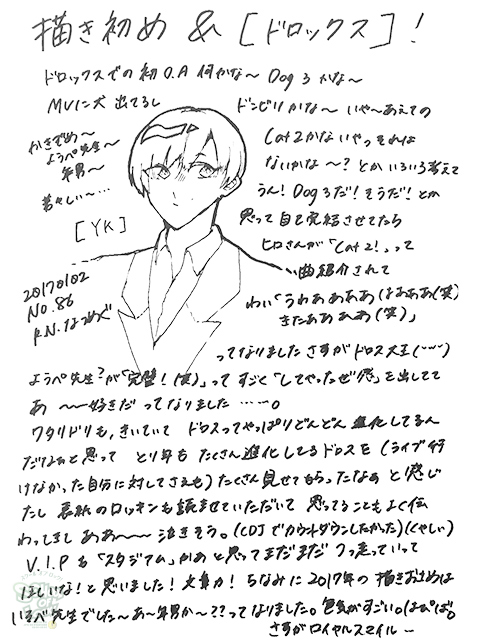 描き初め & [ドロックス]!
ドロックスでの初O.A 何かな〜 Dog 3 かな〜
MVに犬 出てるし
ドンピリかな〜 いや〜あえての
Cat2かないやっそれは
ないかな〜?とかいろいろ考えて
うん!Dog3だ!そうだ!とか
思って自己完結させてたら
ヒロさんが「Cat2!」って
曲紹介されて
わい「うわああああ(はあああ(笑)
きたあああああ(笑)」
かきぞめ〜
ようぺ先生〜
年男〜
若々しい〜…
[YK]
20170102
No.86
R.N.なつめぐ
ってなりました さすがドロス大王(¨)
ようぺ先生?が「完璧!(笑)」って すごく「してやったぜ感」を出してて
あ〜〜好きだ ってなりました ……。
ワタリドリも、きいていて ドロスってやっぱりどんどん進化してるん
だなぁと思って とり年も たくさん進化してるドロスを (ライブ行
けなかった自分に対してさえも)たくさん見せてもらったなぁ と感じ
たし 表紙のロッキンも読ませていただいて 思ってることもよく伝
わってきし ああ〜〜 泣きそう。(CDJでカウントダウンしたかった)(くやしい)
V.I.Pも「スタジアム」かぁと思ってまだまだ つっ走っていって
ほしいな!と思いました!文章力!ちなみに2017年の描きおさめは
いるべ先生でした〜あ〜年男か〜??ってなりました。色気がすごい。はぴば。
さすがロイヤルスマイルー